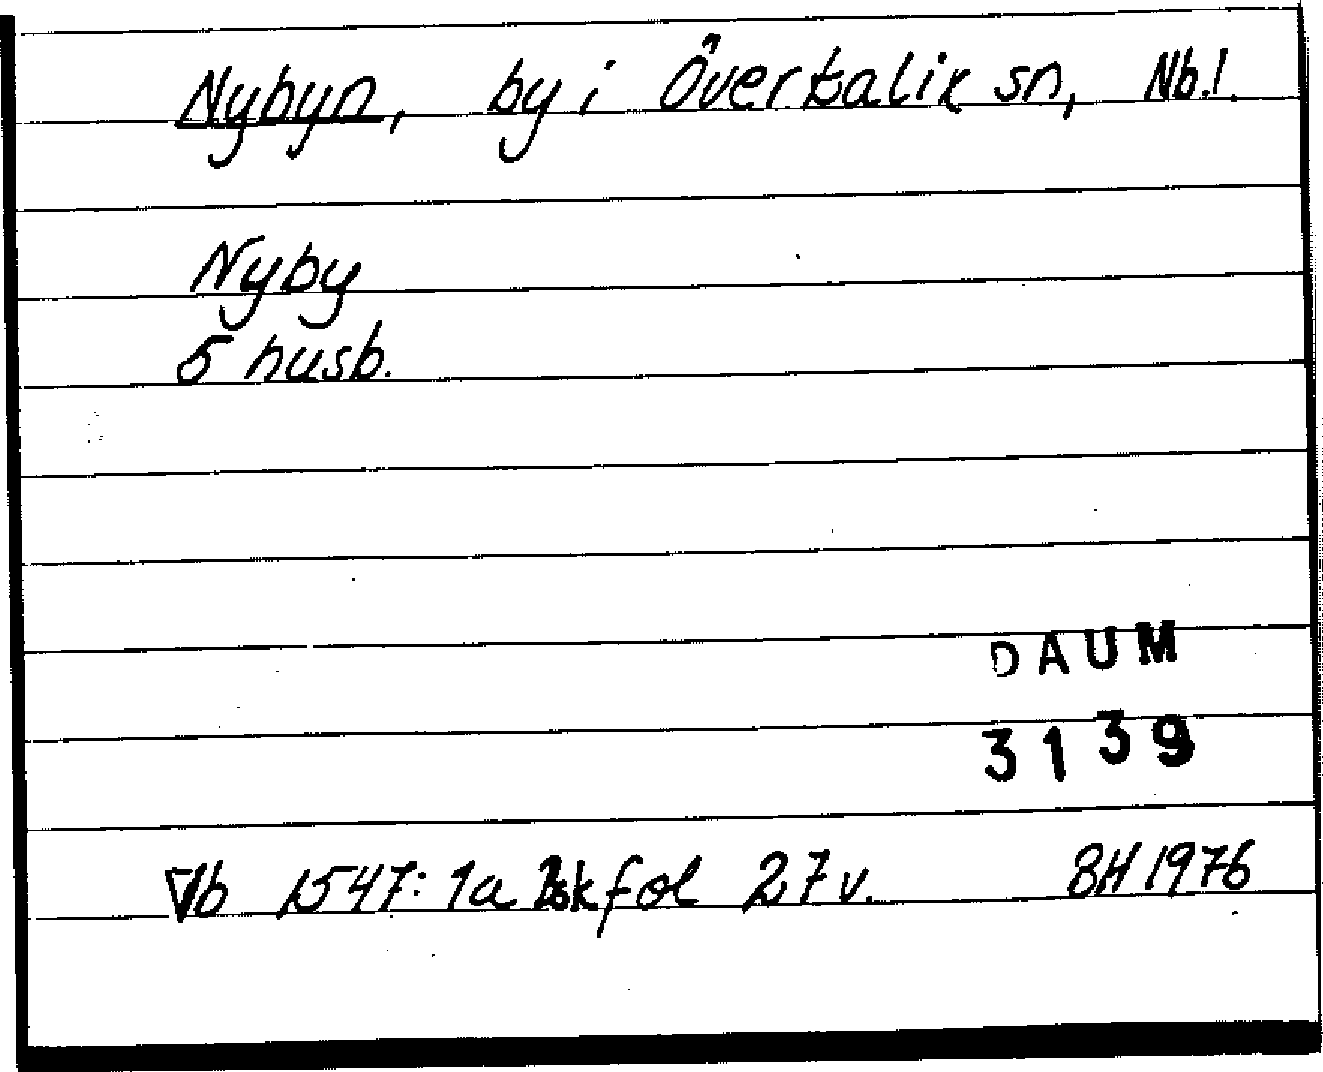 Nybyn, by i Överkalix sn, Nb.l.
Nyby
5 husb.
DAUM
3139
Vb 1547:1a fol 27v. BH 1976